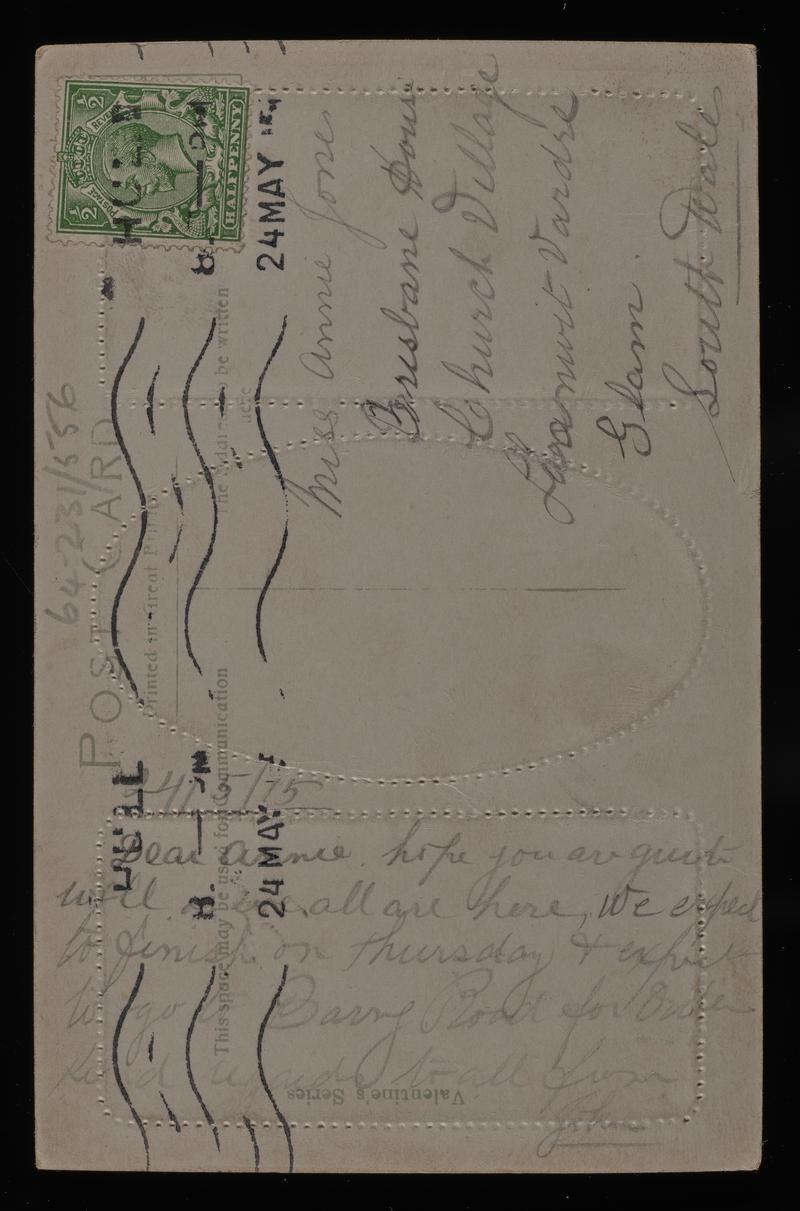 64-231/556
POST CARD
Printed in Great Britain
This space may be used for Communication
The Address to be written
here
½ POSTAGE REVENUE ½
HALFPENNY
HULL
24 MAY 15
HULL
24 MAY
Miss Annie Jones
Brisbane House
Church Village
Llanwit Vardre
Glam.
South Wales
24/5/15
Dear Annie. hope you are quite
well as we all are here, We expect
to finish on Thursday & expect
to go to Barry Road for Order
Kind regards to all from
John
Valentine's Series